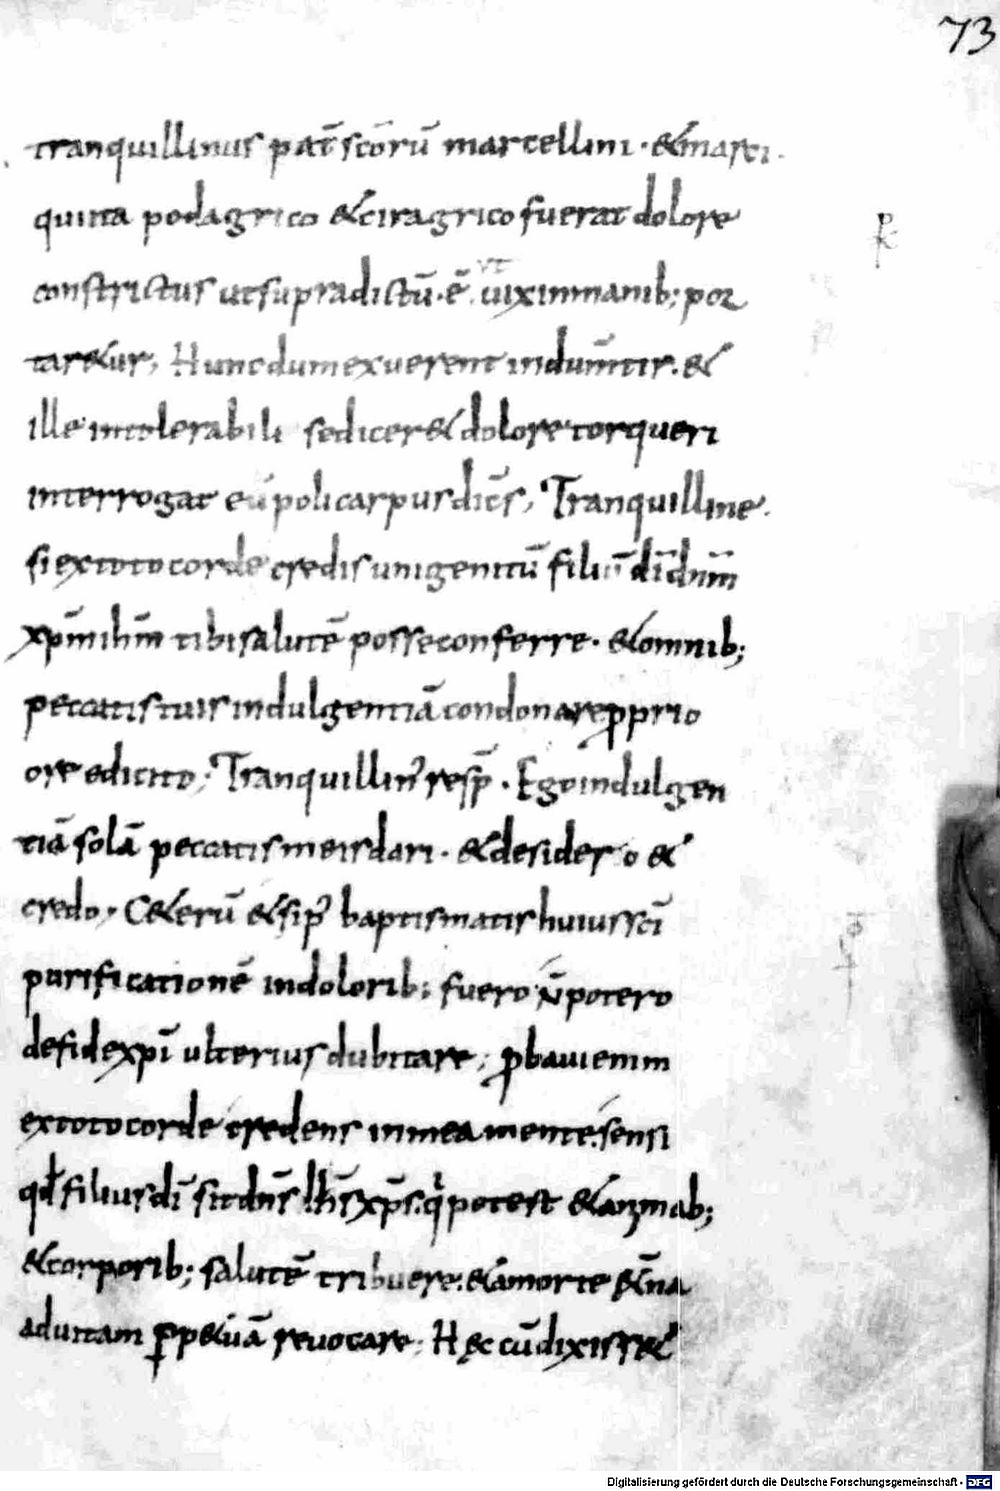 73
tranquillinus pat̄ sc̄orū marcellini · & marci ·
quinta podagrico & ciragrico fuerat dolore
constrictus ut supradictū · ē · ut uix in manib; por
tar&ur; Hunc dum exuerent indum̄tis · &
ille intolerabili se dicer& dolore torqueri
interrogat eū policarpus dic̄s; Tranquilline ·
si ex toto corde credis unigenitū filiū dī dn̄m
xp̄m ih̄m tibi salutē posse conferre · & omnib;
peccatis tuis indulgentiā condonare ꝓprio
ore edicito; Tranquillin᾿ resp̄ · Ego indulgen
tiā solā peccatis meis dari · & desidero &
credo; C&erū & si p᾿ baptismatis huius sc̄i
purificationē in dolorib; fuero n̄ potero
de fide xp̄i ulterius dubitare; ꝓbaui enim
ex toto corde credens in mea mente: sensi
qđ filius dī sit dn̄s ih̄s xp̄s · q᾿ potest & animab;
& corporib; salutē tribuere: & a morte &n̄a
ad uitam ꝑp&uā reuocare; Hęc cū dixiss&
Digitalisierung gefördert durch die Deutsche Forschungsgemeinschaft - DFG